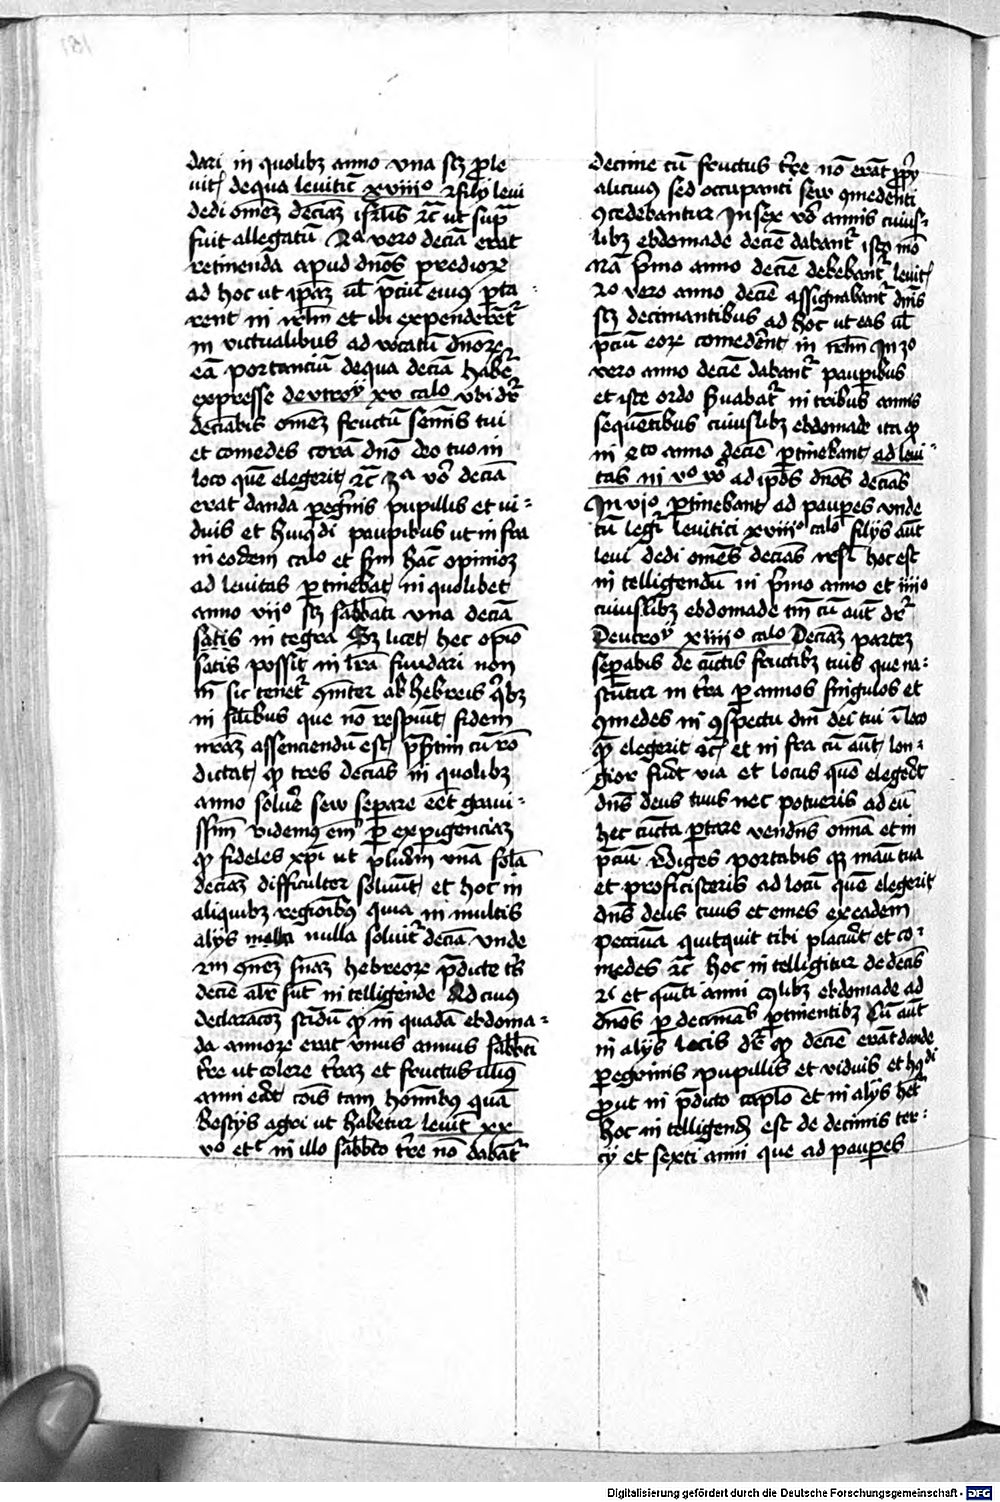 dari in quolibꝫ anno vna scꝫ ꝓ le
uit̛ de qua leuiticͥ xviiiº filij leui
dedi oīnes decīas isrl̄is ꝛc̄ ut supͣ
fuit allegatū 2ª vero decīa erat
retinenda apud dn̄os predioꝝ
ad hoc ut ip̄aꝫ ul̄ p̄ciū eius porta
rent in irl̄m et ibi expenderēt̛
in victualibus ad vocatū dn̄oꝝ
eā portanciū de qua decīa habet̛
expresse deutroȳ xv caº vbi dr̄
decīabis om̄eꝫ fructū semīs tui
et comedes corā dn̄o deo tuo in
loco quē elegerit ꝛc̄ 3ª vº decīa
erat danda peg̛nis pupillis et ui⸗
duis et huiꝰdi paupibus ut infra
in eodem caº et scd̄m hāc opinioꝫ
ad leuitas ꝑtinebat in quolibet
anno viiº scꝫ sabbati vna decīa
satis integra Sꝫ licet hec opīo
satis possit in lr̄a fundari non
tn̄ sic tenet̛ cōiter ab hebreis qͥbꝫ
in silibus que nō respuūt fidem
nr̄aꝫ assenciendū est p̄sertim cū rō
dictat ꝙ tres decīas in quolibꝫ
anno soluē seu separe eēt graui⸗
ssīm videmꝰ em̄ ꝑ experigenciaꝫ
ꝙ fideles xp̄i ut plurīm vnā solā
decīaꝫ difficulter soluūt et hoc in
aliquibꝫ regionibꝰ quia in multis
alijs nulla soluit̛ decīa vnde
hebreoꝝ p̄dicte tr̄s
decīe alr̄ sūt intelligende Ad cuiꝰ
declaracōꝫ sciēdū ꝙ in quadā ebdoma⸗
da annoꝝ erat vnus annus sabbati
tr̄re ut colere tr̄raꝫ et fructus illiꝰ
anni erāt cōis tam hoībus quā
bestijs agri ut habetur leuit̄ xx
vº et in illo sabbato tr̄re nō dabat̛
decime cū fructus tr̄re nō erāt ꝓpȳ
alicuiꝰ sed occupanti seu ꝯmedenti
ꝯcedebantur In sex vº annis cuius⸗
libꝫ ebdomade decīe dabant̛ isto mō
Nā p̄mo anno decīe debebant̛ leuit̛
2º vero anno decīe assignabant̛ dn̄is
scꝫ decimantibus ad hoc ut eas ul̄
p̄ciū eoꝝ comederēt in irl̄m In 3º
vero anno decīe dabant̛ pauꝑibus
et iste ordo ẜuabat̛ in tribus annis
sequētibus cuiuslibꝫ ebdomade ita ꝙ
in 4to anno decīe ꝑtinebant ad leui⸗
tas in vº vº ad ip̄os dn̄os decīas
In viº ꝑtinebant ad pauꝑes vnde
cū legit̛ leuitici xviiiº caº filijs aūt
leui dedi om̄es decīas isrl̄ hoc est
intelligendū in p̄mo anno et iiiiº
cuiuslibꝫ ebdomade tn̄ cū aūt dr̄
Deutroȳ xiiiiº caº Decīaꝫ parteꝫ
seꝑabis de cūctis fructibꝫ tuis que na⸗
scūtur in tr̄ra ꝑ annos singulos et
ꝯmedes in ꝯspectu dn̄i dei tui ī loco
quē elegerit ꝛc̄ et infra cū aūt lon⸗
gior fuerit via et locus quē elegerit
dn̄s deus tuus nec potueris ad eū
hec cūcta portare vendens omīa et in
p̄ciū rediges portabis ꝙ manu tua
et proficisceris ad locū quē elegerit
dn̄s deus tuus et emes ex eadem
peccunia quitquit tibi placuerit et co⸗
medes ꝛc̄ hoc intelligitur de decīs
2i et quīti anni cuiuslibꝫ ebdomade ad
dn̄os ꝑ decimas ꝑtinentibꝫ Cū aūt
in alijs locis dr̄ ꝙ decīe erāt dande
ꝑegrinis pupillis et viduis et hꝰdi
ꝓut in p̄dicto caplo et in alijs het̛
hoc intelligendū est de decimis ter⸗
cij et sexti anni que ad pauꝑes
Digitalisierung gefördert durch die Deutsche Forschungsgemeinschaft - DFG